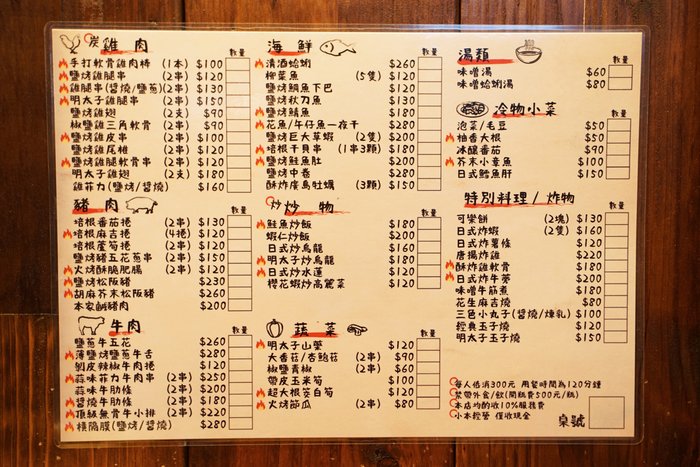 炭 雞肉 數量
手打軟骨雞肉棒 (1本) $100
鹽烤雞腿串 (2串) $120
雞腿串(醬燒/鹽蔥) (2串) $130
明太子雞腿串 (2串) $150
鹽烤雞翅 (2支) $90
椒鹽雞三角軟骨 $90
鹽烤雞皮串 (2串) $100
鹽烤雞尾椎 (2串) $120
鹽烤雞腿軟骨串 (2串) $120
明太子雞翅 (2支) $180
雞菲力(鹽烤/醬燒) $160
豬肉 數量
培根番茄捲 (2串) $130
培根麻吉捲 (4捲) $120
培根蘆筍捲 (2串) $120
鹽烤豬五花蔥串 (2串) $150
火烤酥脆肥腸 (2串) $120
鹽烤松阪豬 $230
胡麻芥末松阪豬 $260
本家鹹豬肉 $200
牛肉 數量
鹽蔥牛五花 $260
薄鹽燒鹽蔥牛舌 $280
剝皮辣椒牛肉捲 $120
蒜味菲力牛肉串 (2串) $250
蒜味牛肋條 (2串) $200
醬燒牛肋條 (2串) $180
頂級無骨牛小排 (2串) $220
橫隔膜(鹽烤/醬燒) $280
海鮮 數量
清酒蛤蜊 $260
柳葉魚 (5隻) $120
鹽烤鯛魚下巴 $120
鹽烤秋刀魚 $130
鹽烤鯖魚 $180
花魚/午仔魚一夜干 $280
鹽烤巨大草蝦 (2隻) $200
培根干貝串 (1串3顆) $180
鹽烤鮭魚肚 $200
鹽烤中卷 $280
酥炸廣島牡蠣 (3顆) $150
炒 炒物 數量
鮭魚炒飯 $180
蝦仁炒飯 $200
日式炒烏龍 $160
明太子炒烏龍 $180
日式炒水蓮 $120
櫻花蝦炒高麗菜 $120
蔬菜 數量
明太子山藥 $120
大香菇/杏鮑菇 (2串) $90
椒鹽青椒 (2串) $60
帶皮玉米筍 $100
超大根茭白筍 $120
火烤節瓜 (2串) $80
湯類 數量
味噌湯 $60
味噌蛤蜊湯 $80
冷物小菜 數量
泡菜/毛豆 $50
柚香大根 $50
冰釀番茄 $90
芥末小章魚 $100
日式鱈魚肝 $150
特別料理/炸物 數量
可樂餅 (2塊) $130
日式炸蝦 (2隻) $160
日式炸薯條 $120
唐揚炸雞 $220
酥炸雞軟骨 $180
日式炸牛蒡 $200
味噌牛筋煮 $180
花生麻吉燒 $80
三色小丸子(醬燒/煉乳) $100
經典玉子燒 $120
明太子玉子燒 $150
每人低消300元 用餐時間為120分鐘
禁帶外食/飲(開瓶費500元/瓶)
本店均酌收10%服務費
小本經營 僅收現金
桌號